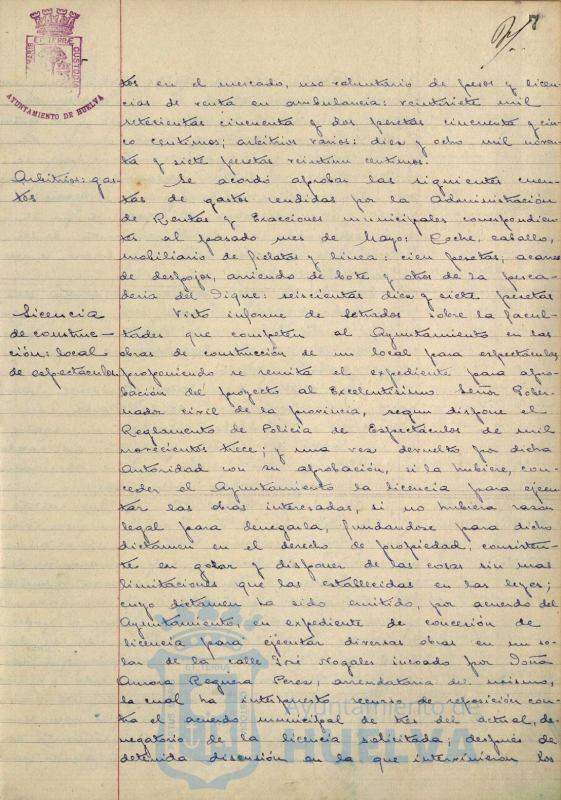 AYUNTAMIENTO DE HUELVA
tos en el mercado, uso voluntario de pesos y licen-
cias de venta en ambulancia: veintisiete mil
setecientas cincuenta y dos pesetas cincuenta y cin-
co centimos; arbitrios varios: diez y ocho mil noven-
ta y siete pesetas veintiun centimos.
Arbitrios: gas-
tos
Se acordó aprobar las siguientes cuen-
tas de gastos rendidas por la Administración
de Rentas y Exacciones municipales correspondien-
tes al pasado mes de Mayo: Coche, caballo,
mobiliario de fielatos y linea: cien pesetas; acarreo
de despojos, arriendo de bote y otros de la pesca-
deria del Dique: seiscientas diez y siete pesetas
Licencia
de construc-
ción: local
de espectaculos
Visto informe de Letrados sobre la facul-
tades que competen al Ayuntamiento en las
obras de construcción de un local para espectáculos
proponiendo se remita el expediente para apro-
bación del proyecto al Excelentísimo Señor Gober-
nador civil de la provincia, segun dispone el
Reglamento de Policía de Espectáculos de mil
novecientos trece; y una vez devuelto por dicha
Autoridad con su aprobación, si la hubiere, con-
ceder el Ayuntamiento la licencia para ejecu-
tar las obras interesadas, si no hubiera razon
legal para denegarla, fundandose para dicho
dictamen en el derecho de propiedad, consisten-
te en gozar y disponer de las cosas sin mas
limitaciones que las establecidas en las leyes;
cuyo dictamen ha sido emitido, por acuerdo del
Ayuntamiento, en expediente de concesión de
licencia para ejecutar diversas obras en un so-
lar de la calle José Nogales incoado por Doña
Aurora Requera Perez, arrendataria del mismo,
la cual ha interpuesto recurso de reposición con-
tra el acuerdo municipal de tres del actual, de-
negatorio de la licencia solicitada después de
detenida discusión en la que intervinieron los
Ayuntamiento de
HUELVA